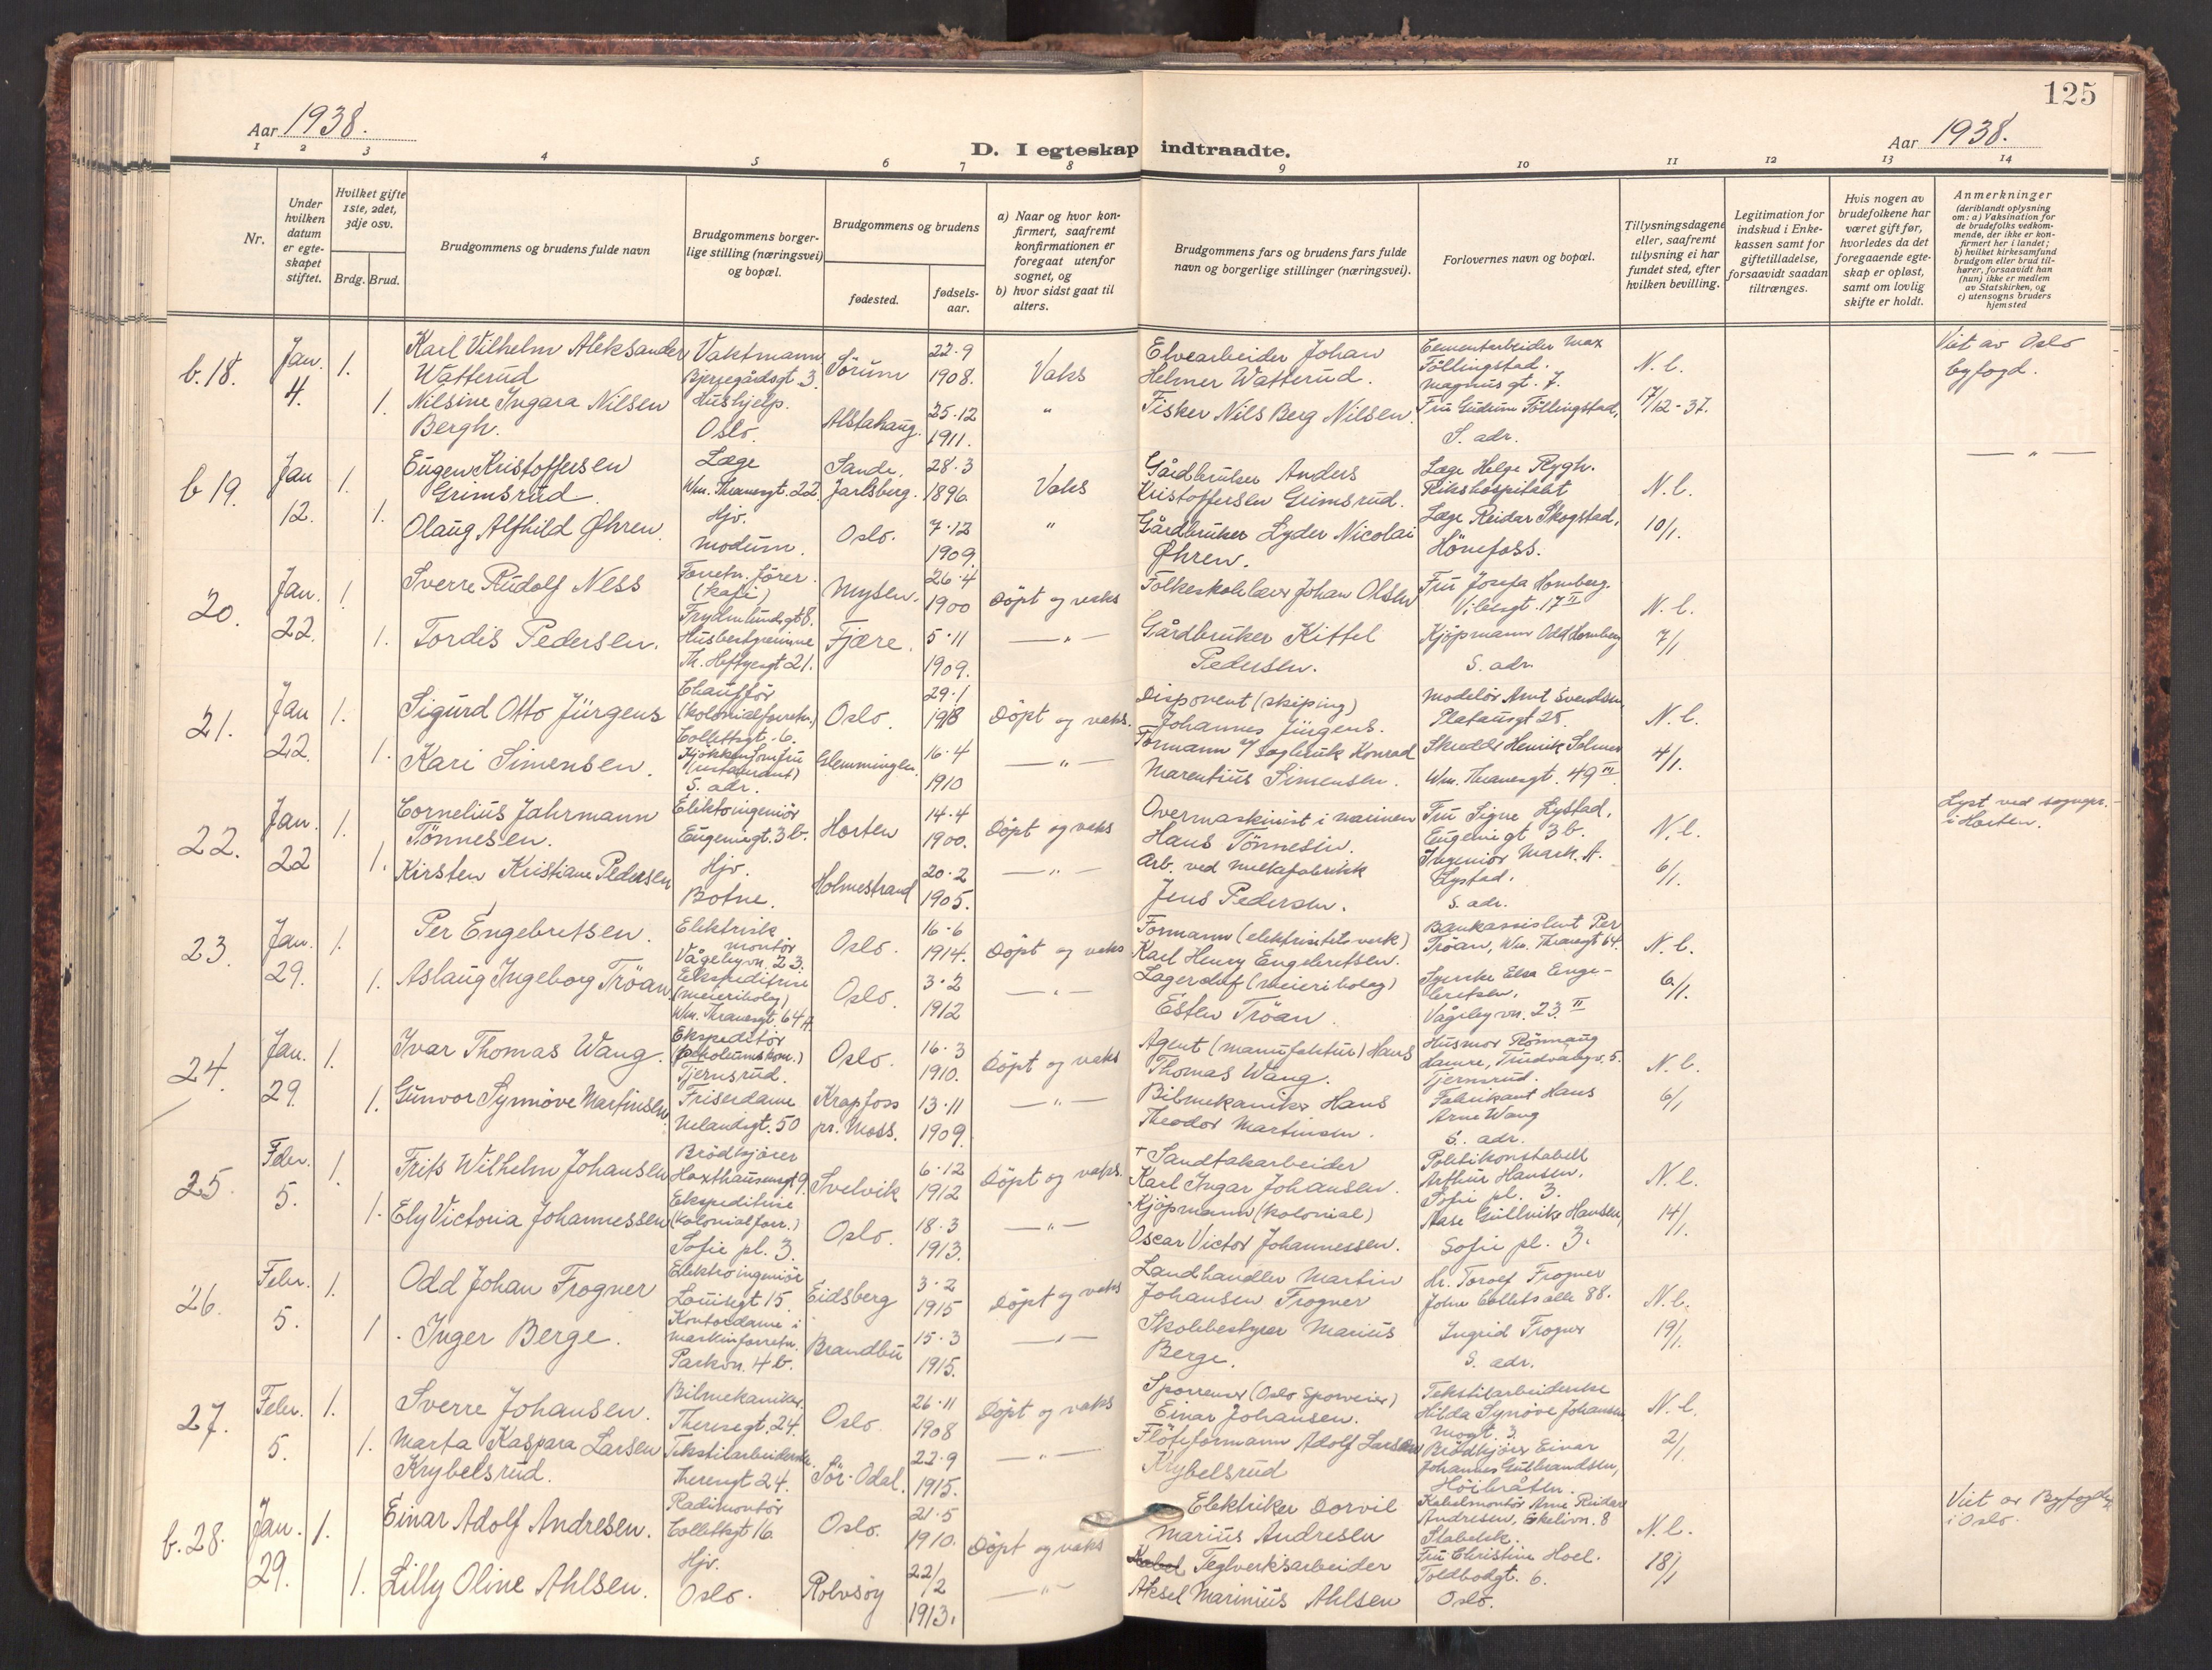 125
Aar 1938.
D. I egteskap indtraadte.
Aar 1938.
1 2 3 4 5 6 7 8 9 10 11 12 13 14
Nr.
Under hvilken datum er egteskapet stiftet.
Hvilket gifte 1ste, 2det, 3dje osv.
Brdg. Brud.
Brudgommens og brudens fulde navn
Brudgommens borgerlige stilling (næringsvei) og bopæl.
Brudgommens og brudens
fødested.
fødselsaar.
a) Naar og hvor konfirmert, saafremt konfirmationen er foregaat utenfor sognet, og
b) hvor sidst gaat til alters.
Brudgommens fars og brudens fars fulde navn og borgerlige stillinger (næringsvei).
Forlovernes navn og bopæl.
Tillysningsdagene eller, saafremt tillysning ei har fundet sted, efter hvilken bevilling.
Legitimation for indskud i Enkekassen samt for giftetilladelse, forsaavidt saadan tiltrænges.
Hvis nogen av brudefolkene har været gift før, hvorledes da det foregaaende egteskap er opløst, samt om lovlig skifte er holdt.
Anmerkninger
(deriblandt oplysning om: a) Vaksination for de brudefolks vedkommende, der ikke er konfirmert her i landet;
b) hvilket kirkesamfund brudgom eller brud tilhører, forsaavidt han (hun) ikke er medlem av Statskirken, og
c) utensogns bruders hjemsted
b.18.
Jan. 4.
1.
Karl Vilhelm Aleksander Watterud
Vaktmann
Bjerregårdsgt. 3.
Sørum
22.9 1908.
Vaks
Elvearbeider Johan Helmer Watterud.
Cementarbeider Max Föllingstad. Magnus gt. 7.
N. l. 17/12-37.
Viet av Oslo byfogd.
1.
Nilsine Ingara Nilsen Bergh.
Hushjelp. Oslo.
Alstahaug.
25.12 1911.
"
Fisker Nils Berg Nilsen.
Fru Gudrun Föllingstad, S. adr.
b 19.
Jan 12.
1.
Eugen Kristoffersen Grimsrud.
Læge
Wm. Thranesgt. 22
Sande, Jarlsberg.
28.3 1896
Vaks
Gårdbruker Anders Kristoffersen Grimsrud.
Læge Helge Rygh. Rikshospitalet
N. l. 10/1.
— " —
1.
Olaug Alfhild Øhren.
Hjv. Modum.
Oslo.
7.12 1909.
"
Gårdbruker Lyder Nicolai Øhren.
Læge Reidar Skogstad, Hönefoss.
20.
Jan. 22.
1.
Sverre Rudolf Ness
Forretn. förer. (kafe)
Frydenlundsgt 8.
Mysen.
26.4 1900
Döpt og vaks
Folkeskolelærer Johan Olsen
Fru Josefa Homberg. Vibesgt. 17 II
N. l. 7/1
1.
Tordis Pedersen.
Husbestyrerinne
Th. Heftyesgt 21.
Fjære.
5.11 1909.
— " —
Gårdbruker Kittel Pedersen.
Kjöpmann Odd Homberg S. adr.
21.
Jan 22.
1.
Sigurd Otto Jürgens
Chaufför (kolonialforretn.)
Collettsgt. 6.
Oslo.
29.1 1918
Döpt og vaks.
Disponent (skiping) Johannes Jürgens.
Modelör Arnt Svendsen, Platousgt 25.
N. l. 4/1.
1.
Kari Simensen.
Kjökkenjomfru (restaurant) S. adr.
Glemmingen.
16.4 1910
— " —
Formann v/ sagbruk Konrad Marentius Simensen.
Skredder Henrik Solmer Wm. Thranesgt. 49 III
22.
Jan. 22
1.
Cornelius Jahrmann Tönnesen.
Elektoingeniör
Eugeniagt. 3 b.
Horten
14.4 1900.
Döpt og vaks
Overmaskinist i marinen Hans Tönnesen.
Fru Signe Lystad, Eugeniagt 3 b.
N. l. 6/1.
Lyst ved sognepr. i Horten.
1.
Kirsten Kristiane Pedersen
Hjv. Botne.
Holmestrand
20.2 1905.
— " —
Arb. ved melkefabrikk Jens Pedersen.
Ingeniör Mark. A. Lystad. S. adr.
23.
Jan. 29.
1.
Per Engebretsen.
Elektrisk montör
Vågebyvn. 23.
Oslo.
16.6 1914.
Döpt og vaks
Formann (elektrisitetsverk) Karl Henry Engebretsen.
Bankassistent Per Tröan, Wm. Thranesgt 64.
N. l. 6/1.
1.
Aslaug Ingeborg Tröan
Ekspeditrise (meieribolag)
Wm. Thranesgt. 64 A
Oslo.
3.2 1912
— " —
Lagersjef (meieribolag) Esten Tröan.
Syerske Elsa Engebretsen. Vågebyvn. 23. II
24.
Jan. 29.
1.
Ivar Thomas Wang.
Ekspeditör (petroleumskom.) Tjernsrud.
Oslo.
16.3 1910.
Döpt og vaks
Agent (manufaktur) Hans Thomas Wang.
Husmor Rönnaug Hamre, Trudvangv. 5. Tjernsrud.
N. l. 6/1
1.
Gunvor Synnöve Martinsen.
Friserdame
Uelandsgt. 50
Krapfoss pr. Moss.
13.11 1909.
— " —
Bilmekaniker Hans Theodor Martinsen.
Fabrikant Hans Arne Wang S. adr.
25.
Febr. 5.
1.
Frits Wilhelm Johansen
Brödkjörer
Haxthausensgt 9.
Svelvik
6.12 1912
Döpt og vaks.
Sandtakarbeider Karl Ingar Johansen.
Politikonstabell Arthur Hansen. Sofie pl. 3.
N. l. 14/1.
1.
Ely Victoria Johannessen
Ekspeditrise (kolonialforr.)
Sofie pl. 3.
Oslo.
18.3 1913.
— " —
Kjöpmann (kolonial) Oscar Victor Johannessen.
Aase Gullvike Hansen, Sofie pl. 3.
26.
Febr. 5.
1.
Odd Johan Frogner
Elektroingeniör
Louisesgt 15.
Eidsberg
3.2 1915
Döpt og vaks
Landhandler Martin Johansen Frogner
Hr. Toralf Frogner John Colletts alle 88.
N. l. 19/1.
1.
Inger Berge.
Kontordame i maskinforretn.
Parkvn. 4 b.
Brandbu
15.3 1915.
— " —
Skolebestyrer Marius Berge.
Ingrid Frogner S. adr.
27.
Febr. 5.
1.
Sverre Johansen.
Bilmekaniker.
Theresegt. 24.
Oslo.
26.11 1908
Döpt og vaks
Sporrenser (Oslo Sporveier) Einar Johansen.
Tekstilarbeiderske Hilda Synöve Johansen Mogt. 3.
N. l. 2/1.
1.
Marta Kaspara Larsen Krybelsrud.
Tekstilarbeiderske.
Theresgt 24.
Sör-Odal.
22.9 1915.
— " —
Flöteformann Adolf Larsen Krybelsrud
Brödkjörer Einar Johannes Gulbrandsen, Höibråten.
b.28.
Jan. 29.
1.
Einar Adolf Andresen.
Radiomontör
Collettsgt 16
Oslo.
21.5 1910.
Döpt og vaks
Elektriker Dorvil Marius Andresen
Kabelmontör Arne Reidar Andresen, Ekelivn. 8 Stabekk.
N. l. 18/1
Viet av Byfogden i Oslo.
1.
Lilly Oline Ahlsen.
Hjv. Oslo.
Rolvsöy
22/2 1913.
— " —
Teglverksarbeider Aksel Marinius Ahlsen
Fru Christine Hoel. Toldbodgt. 6. Oslo.